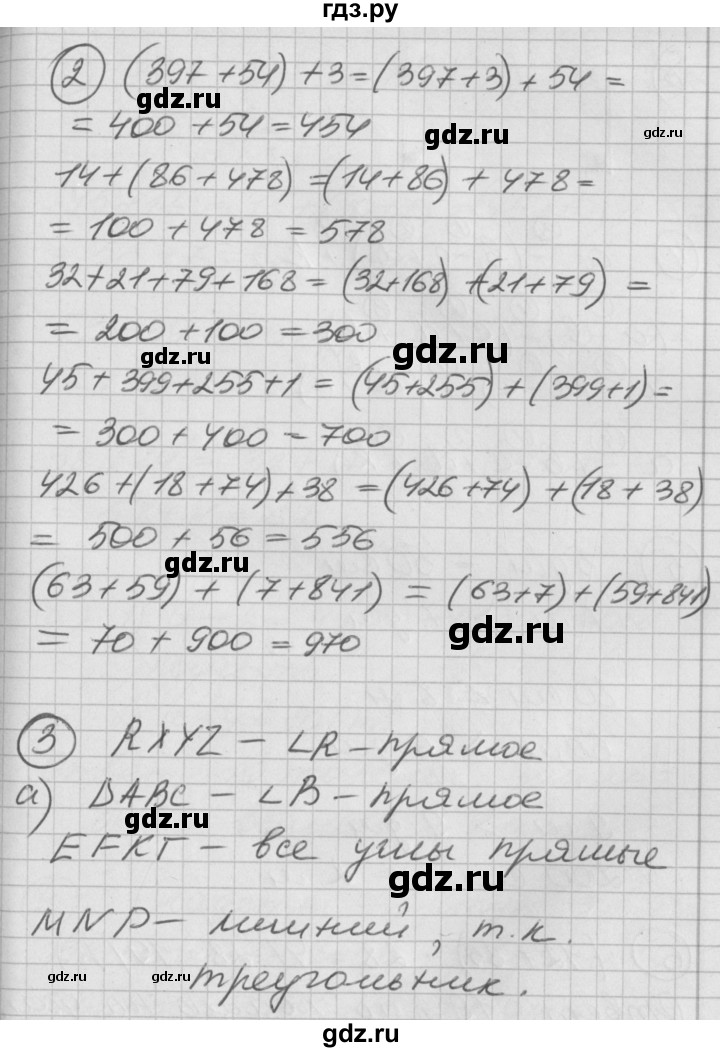 гдз.ру
2 (397+54)+3=(397+3)+54=
gdz.ru
=400+54=454
gdz.ru
gdz.ru
14+(86+478)=(14+86)+478=
=100+478=578
32+21+79+168=(32+168)+(21+79)=
=200+100=300
gdz.ru
gdz.ru
45+399+255+1=(45+255)+(399+1)=
=300+400=700
426+(18+74)+38=(426+74)+(18+38)
=500+56=556
gdz.ru
(63+59)+(7+841)=(63+7)+(59+841)
=70+900=970
gdz.ru
3 RXYZ-∠R-прямое
а) DABC-∠B-прямое
gdz.ru
EFKT-все углы прямые
gdz.ru
MNP-лишний, т.к.
gdz.ru
gdz.ru
треугольник.
gdz.ru
gdz.ru